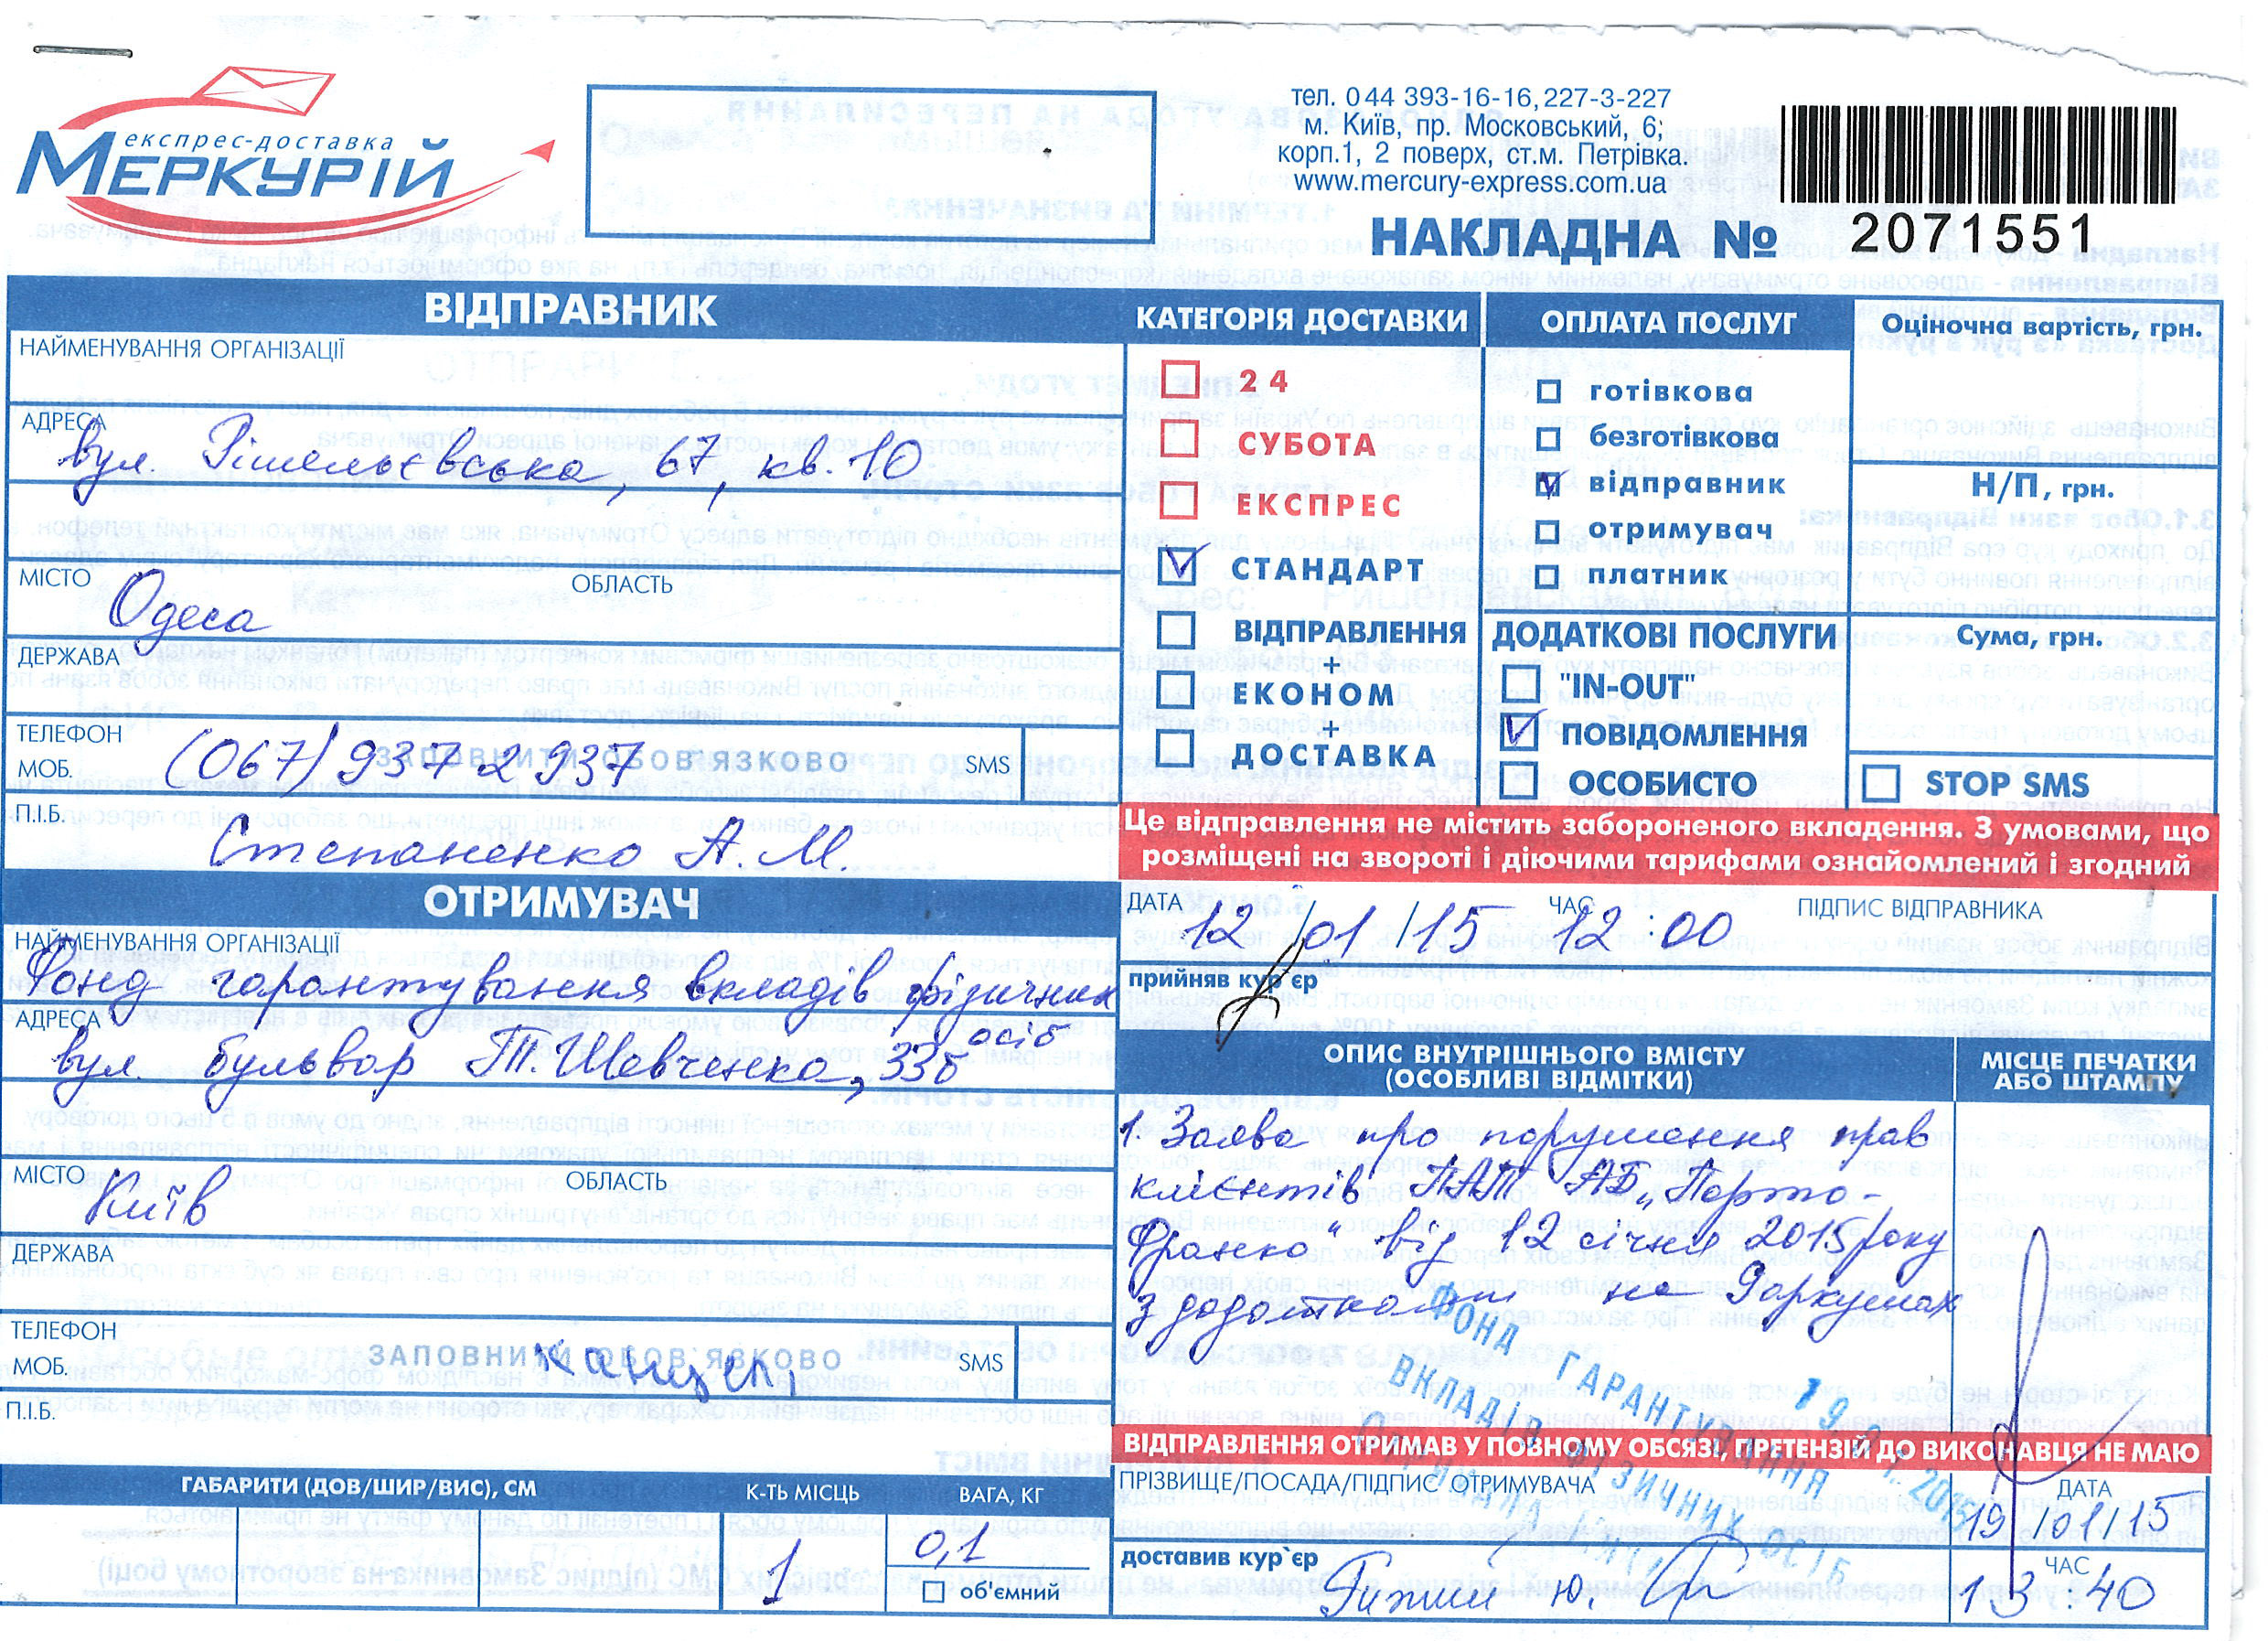 експрес-доставка
МЕРКУРІЙ
тел. 044 393-16-16, 227-3-227
м. Київ, пр. Московський, 6;
корп.1, 2 поверх, ст.м. Петрівка.
www.mercury-express.com.ua
НАКЛАДНА № 2071551
ВІДПРАВНИК
НАЙМЕНУВАННЯ ОРГАНІЗАЦІЇ
АДРЕСА
вул. Рішельєвська, 67, кв. 10
МІСТО Одеса ОБЛАСТЬ
ДЕРЖАВА
ТЕЛЕФОН
МОБ. (067) 937 2 937 ЗАПОВНИТИ ОБОВ'ЯЗКОВО SMS
П.І.Б.
Степаненко А. М.
КАТЕГОРІЯ ДОСТАВКИ
24
СУБОТА
ЕКСПРЕС
СТАНДАРТ
ВІДПРАВЛЕННЯ
+
ЕКОНОМ
+
ДОСТАВКА
ОПЛАТА ПОСЛУГ
готівкова
безготівкова
відправник
отримувач
платник
ДОДАТКОВІ ПОСЛУГИ
"IN-OUT"
ПОВІДОМЛЕННЯ
ОСОБИСТО
Оціночна вартість, грн.
Н/П, грн.
Сума, грн.
STOP SMS
Це відправлення не містить забороненого вкладення. З умовами, що
розміщені на звороті і діючими тарифами ознайомлений і згодний
ОТРИМУВАЧ
НАЙМЕНУВАННЯ ОРГАНІЗАЦІЇ
Фонд гарантування вкладів фізичних
осіб
АДРЕСА
вул. бульвар Т. Шевченка, 33б
МІСТО Київ ОБЛАСТЬ
ДЕРЖАВА
ТЕЛЕФОН
МОБ. ЗАПОВНИТИ ОБОВ'ЯЗКОВО SMS
П.І.Б.
ГАБАРИТИ (ДОВ/ШИР/ВИС), СМ К-ТЬ МІСЦЬ ВАГА, КГ
1 0,1
об'ємний
ДАТА 12/01/15 ЧАС 12:00 ПІДПИС ВІДПРАВНИКА
прийняв кур`єр
ОПИС ВНУТРІШНЬОГО ВМІСТУ
(ОСОБЛИВІ ВІДМІТКИ)
МІСЦЕ ПЕЧАТКИ
АБО ШТАМПУ
1. Заява про порушення прав
клієнтів ПАТ АБ „Порто-
Франко" від 12 січня 2015 року
з додатками на аркушах
ФОНД ГАРАНТУВАННЯ
ВКЛАДІВ ФІЗИЧНИХ ОСІБ
19.01.2015
ВІДПРАВЛЕННЯ ОТРИМАВ У ПОВНОМУ ОБСЯЗІ, ПРЕТЕНЗІЙ ДО ВИКОНАВЦЯ НЕ МАЮ
ПРІЗВИЩЕ/ПОСАДА/ПІДПИС ОТРИМУВАЧА
ДАТА
19/01/15
доставив кур`єр
ЧАС
13:40